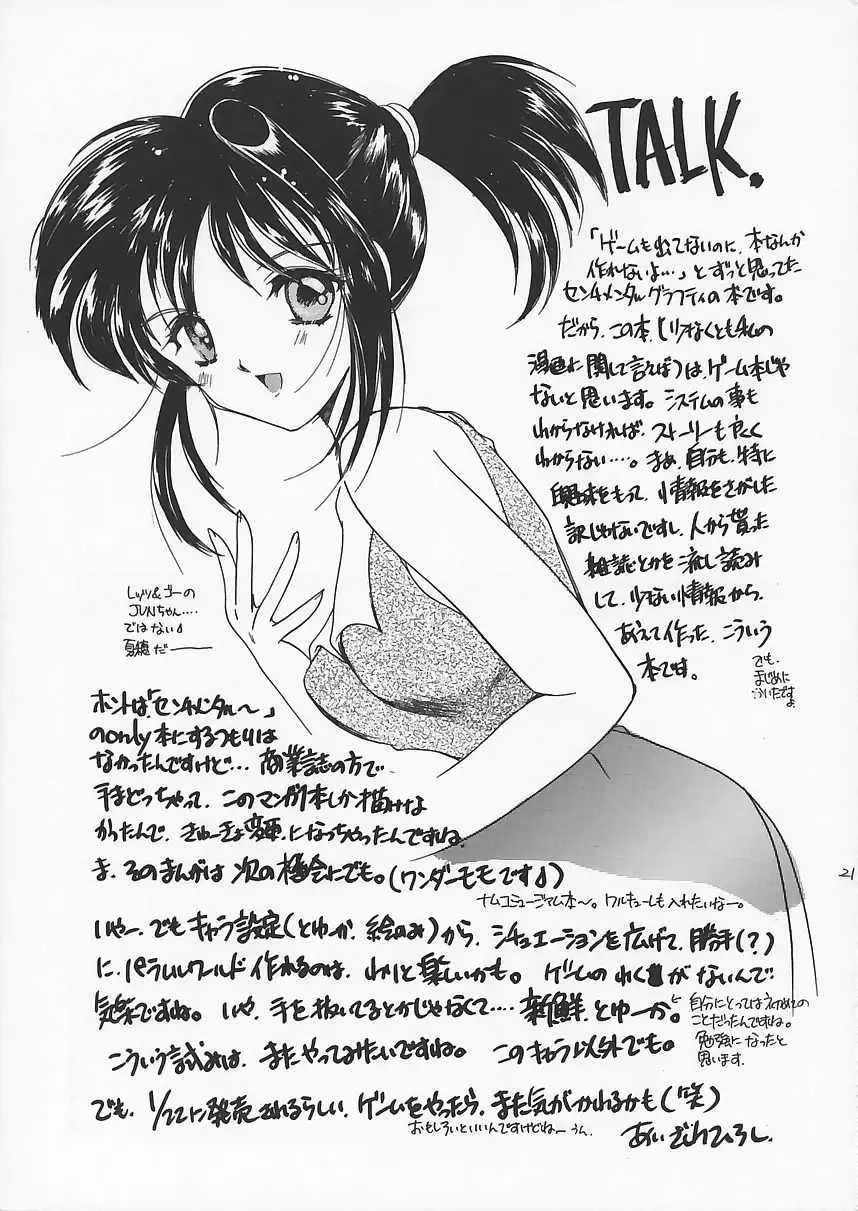 TALK.
「ゲームも出てないのに、本なんか
作れないよ…」とずっと思ってた
センチメンタルグラフティの本です。
だから、この本、(少なくとも私の
漫画に関して言えば)は、ゲーム本じゃ
ないと思います。システムの事も
わからなければ、ストーリーも良く
わからない…。まぁ、自分も、特に
興味をもって、情報をさがした
訳じゃないですし、人から貰った
雑誌とかを流し読み
して、少ない情報から、
あえて作った、こういう
本です。
でも、
まじめに
ついたですよ
レッツ&ゴーの
JUNちゃん….
ではない♪
夏穂だ——
ホントは「センチメンタル〜」
のonly本にするつもりは
なかったんですけど… 商業誌の方で
手まどっちゃって、このマンガ1本しか描けな
かったんで、きゅーきょ変更、になっちゃったんですね。
ま、そのまんがは次の機会にでも。(ワンダーモモです♪)
ナムコミュージアム本〜。ワルキューレも入れたいなー。
いやー、でもキャラ設定(とゆーか、絵のみ)から、シチュエーションを広げて、勝手(?)
に、パラレルワルド作れるのは、わりと楽しいかも。ゲームのわくがないんで
気楽ですね。いや、手を抜いてるとかじゃなくて…. 新鮮、とゆーか。
自分にとってはネ、初めての
ことだったんですね。
勉強になったと
思います。
こういう試みは、またやってみたいですね。このキャラ以外でも。
でも、1/22に発売されるらしい、ゲームをやったら、また気がかわるかも(笑)
おもしろいといいんですけどねーうん。
あいざわひろし
21